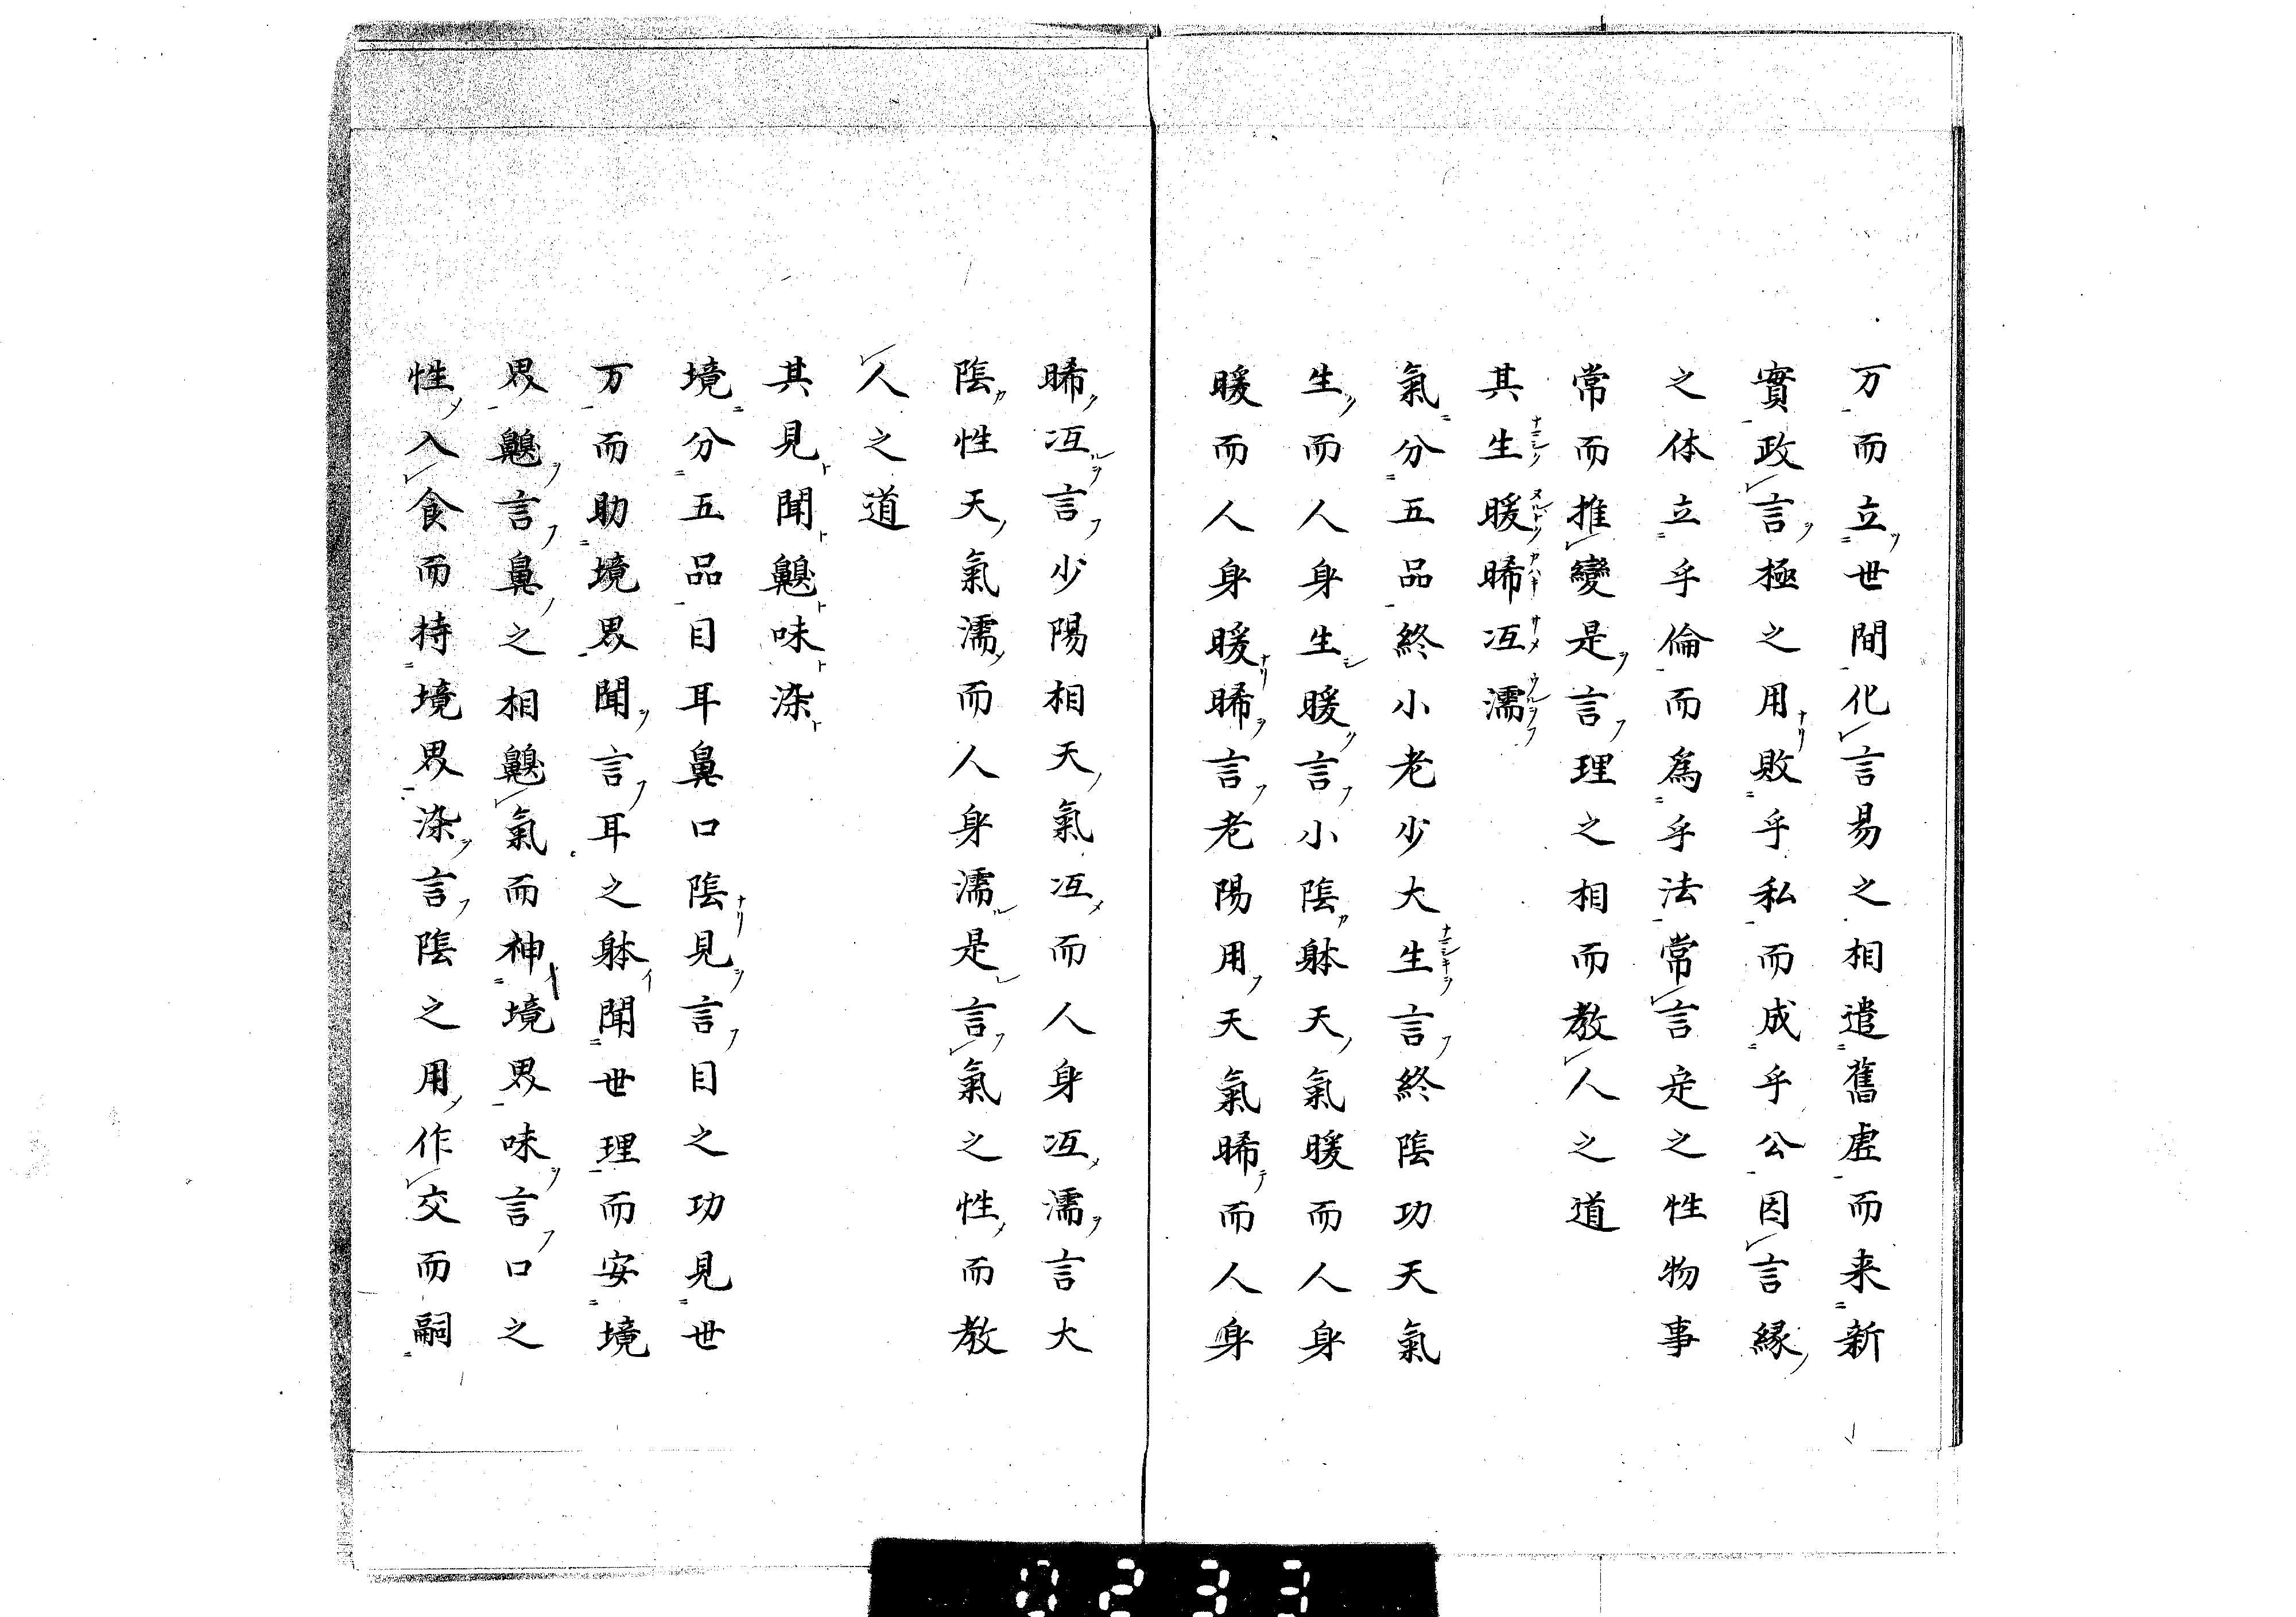 万而立世間化言易之相遣舊虚而来新
實政言極之用敗乎私而成乎公因言縁
之体立乎倫而為乎法常言定之性物事
常而推變是言理之相而教人之道
其生暖晞冱濡
氣分五品終小老少大生言終陰功天氣
生而人身生暖言小陰躰天氣暖而人身
暖而人身暖晞言老陽用天氣晞而人身
晞冱言少陽相天氣冱而人身冱濡言大
陰性天氣濡而人身濡是言氣之性而教
人之道
其見聞齅味染
境分五品目耳鼻口陰見言目之功見世
万而助境界聞言耳之躰聞世理而安境
界齅言鼻之相齅氣而神境界味言口之
性入食而持境界染言陰之用作交而嗣
0233